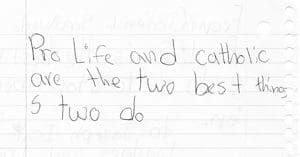 Pro Life and catholic
are the two best thing
s two do